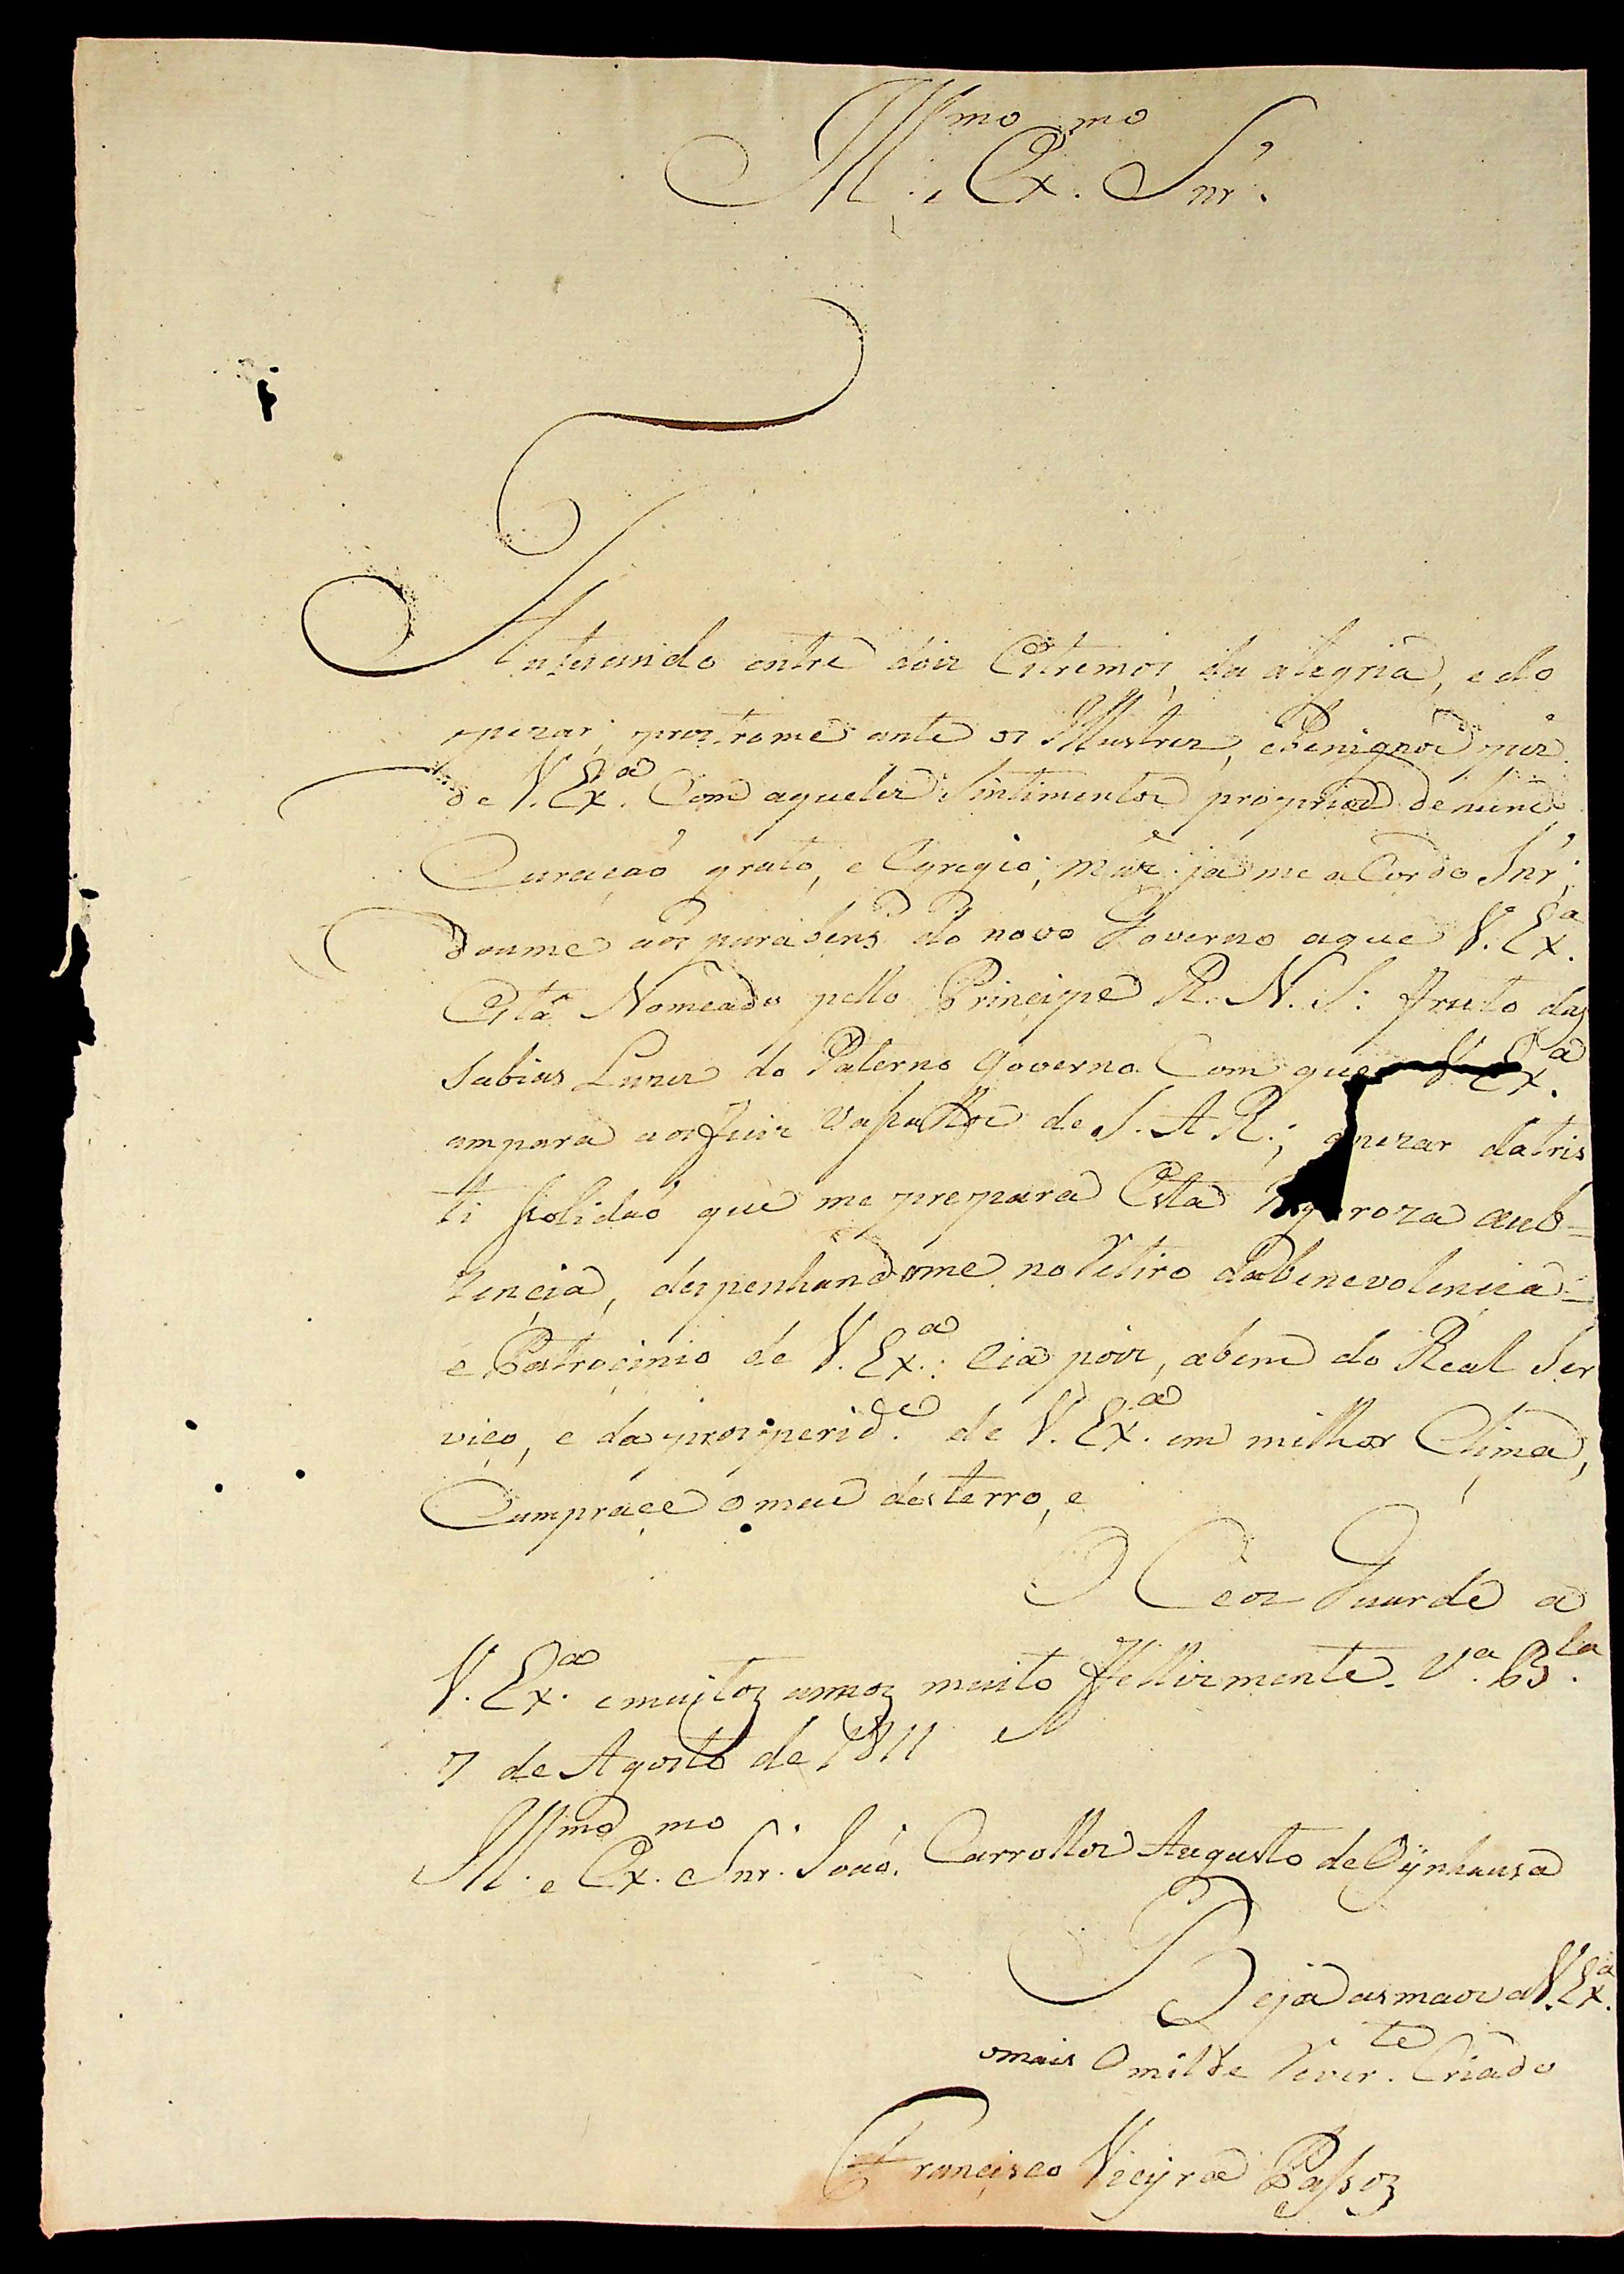 Ill.mo e Ex.mo Snr.
entre dois Estremos, da alegria, e do
pezar; prostrome ante os Illustres, e Benignos pés
de V. Ex.a Com aqueles Sintimentos proprios de hum
Curação grato, e Egregio; mas já me aCordo Snr.;
doume aos parabens do novo Governo aque V. Ex.a
Está Nomeado pello Principe R. N. S. fruto das
Sabias Luzes do Paterno governo Com que V. Ex.a
ampara aos fieis Vassallos de S. A R.; apezar da tris
ti Solidaó que me prepara Esta rigoroza aub=
zencia, despenhandome no Retiro da benevolencia=
e Patrocinio de V. Ex.a: Eia pois, abem do Real Ser
viço, e da prosperid.e de V. Ex.a em milhor Clima,
Cumpraçe o meu desterro, e
O Ceos Guarde a
V. Ex.a emuitos annos muito ffelismente. V.a B.la
7 de Agosto de 1811
Ill.mo e Ex.mo Snr. Joaó Carrollos Augusto de Oÿnhausa
Beja as maos a V. Ex.a
o mais Omilde Rever.te Criado
Francisco Vieyra Passos